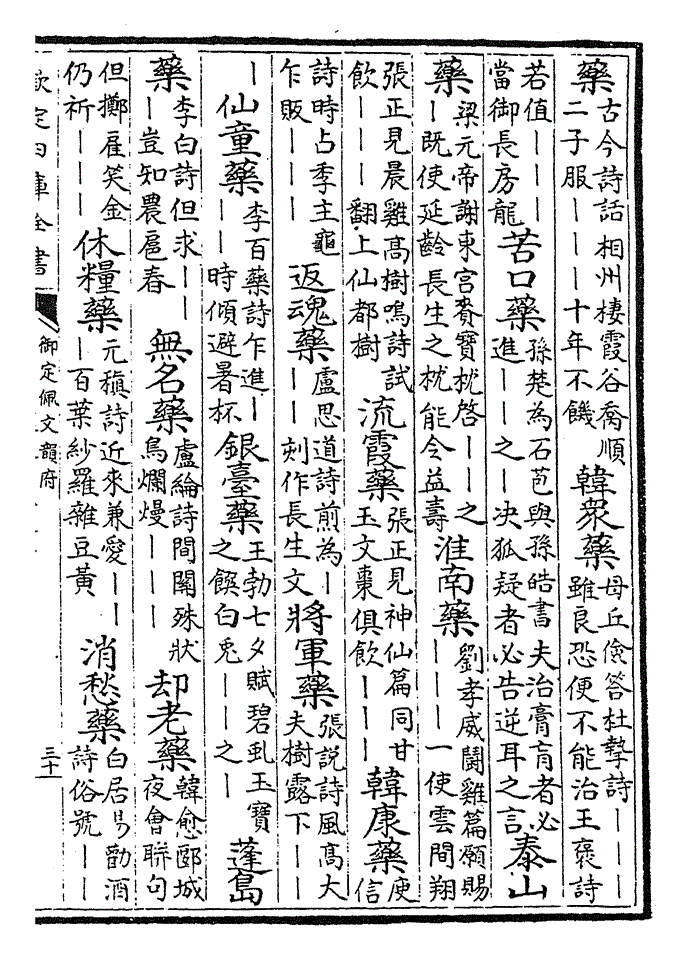 藥古今詩話 相州棲霞谷喬順二子服｜｜｜十年不饑 韓衆藥母丘儉答杜摯詩｜｜｜雖良恐便不能治王褒詩
若值｜｜｜當御長房龍 苦口藥孫楚為石苞與孫皓書 夫治膏肓者必進｜｜之｜决狐疑者必告逆耳之言 泰山
藥梁元帝謝東宮賚寳枕啓｜｜之｜既使延齡長生之枕能令益壽 淮南藥劉孝威鬭雞篇願賜｜｜｜一使雲間翔
張正見晨雞髙樹鳴詩試飲｜｜｜翻上仙都樹 流霞藥張正見神仙篇同甘玉文棗俱飲｜｜｜ 韓康藥庾信
詩時占季主龜乍販｜｜｜ 返魂藥盧思道詩煎為｜｜｜刻作長生文 將軍藥張説詩風髙大夫樹露下｜｜
｜ 仙童藥李百藥詩乍進｜｜｜時傾避暑杯 銀臺藥王勃七夕賦碧虬玉寳之饌白兎｜｜之｜ 蓬島
藥李白詩但求｜｜｜豈知農扈春 無名藥盧綸詩間關殊狀鳥爛熳｜｜｜ 却老藥韓愈郾城夜會聯句
但擲雇笑金仍祈｜｜｜ 休糧藥元稹詩近來兼愛｜｜｜百葉紗羅雜豆黃 消愁藥白居易勸酒詩俗號｜｜
欽定四庫全書 御定佩文韻府 三十